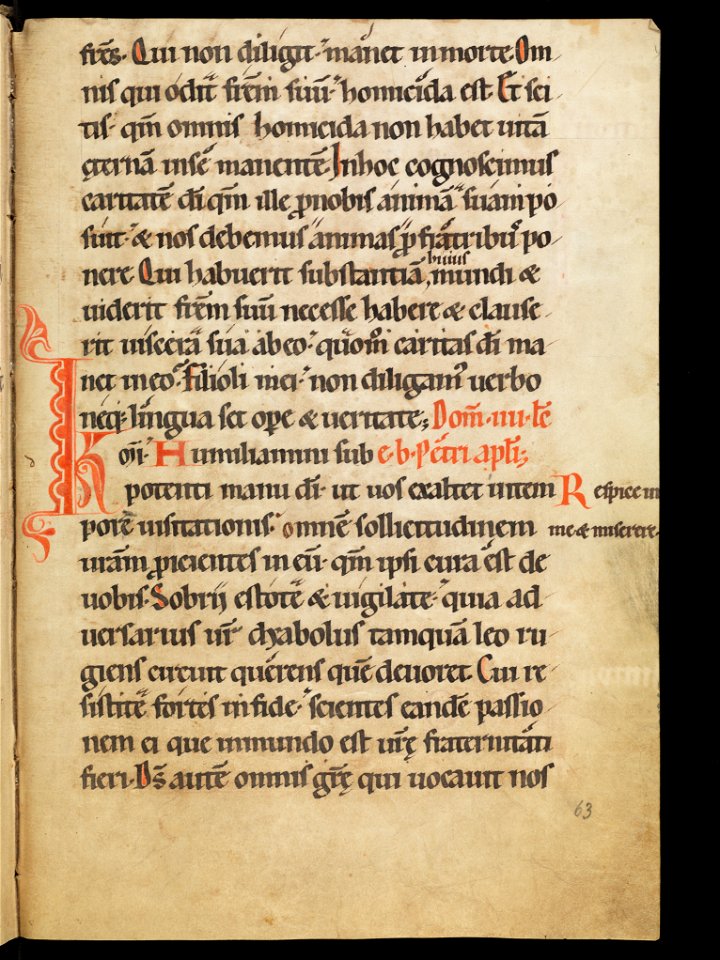 fr̄es. Qui non diligit. manet in morte. Om
nis qui odit fr̄em suū. homicida est. Et sci
tis. qm̄ omnis homicida non habet uitā
ęternā in sē manentē. In hoc cognoscimus
caritatē dī. qm̄ ille ꝓ nobis animā suam po
suit. & nos debemus animas ꝓ fratribꝰ po
nere. Qui habuerit substantiā huius mundi &
uiderit fr̄em suū necesse habere & clause
rit uiscera sua ab eo. quōm caritas dī ma
net in eo. Filioli mei. non diligamꝰ uerbo
neqꝫ lingua set oꝑe & ueritate; Dom̄. iiii. Łe
Kmi. Humiliamini sub e. b. Petri apłi;
potenti manu dī. ut uos exaltet in tem
Respice in
porē uisitationis. omnē sollicitudinem
me & miserere.
uram̄ ꝓicientes in eū. qm̄ ipsi cura est de
uobis. Sobrij estotē & uigilate. quia ad
uersarius ur̄ dyabolus tamquā leo ru
giens circuit querens quē deuoret. Cui re
sistitē fortes in fide. scientes eandē passio
nem ei que in mundo est ur̄ę fraternitati
fieri. Ds̄ autē omnis gr̄ę qui uocauit nos
63